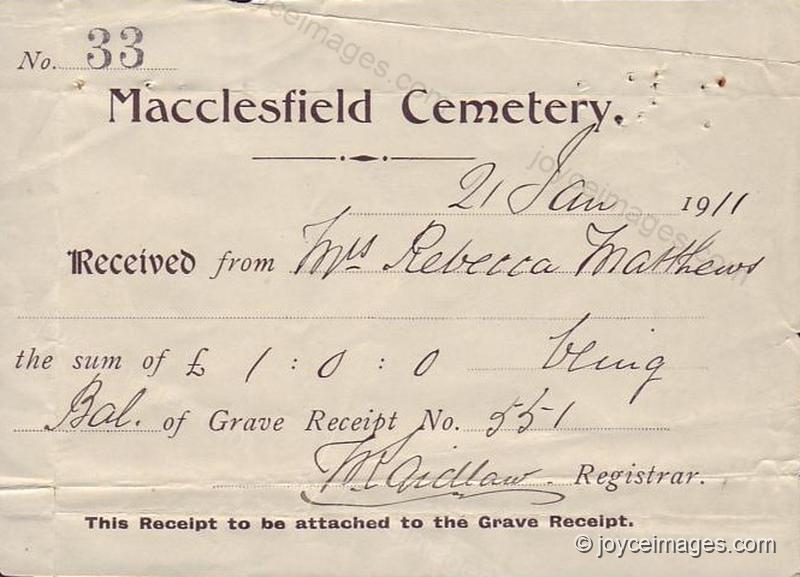 No. 33
Macclesfield Cemetery.
21 Jan 1911
Received from Mrs Rebecca Matthews
the sum of £ 1 : 0 : 0 being
Bal. of Grave Receipt No. 551
Laidlaw. Registrar.
This Receipt to be attached to the Grave Receipt.
© joyceimages.com
joyceimages.com
joyceimages.com